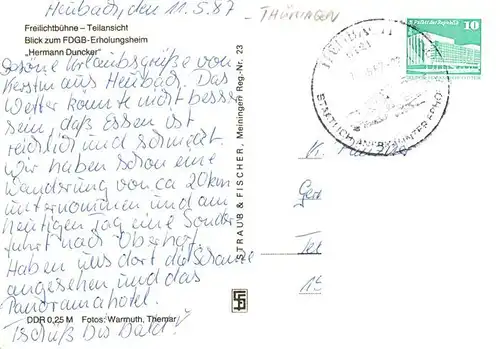 Heubach, den 11.5.87
THÜRINGEN
Freilichtbühne – Teilansicht
Blick zum FDGB-Erholungsheim
„Hermann Duncker"
Schöne Urlaubsgrüße von
Kerstin aus Heubach. Das
Wetter konnte nicht besser
sein, daß Essen ist
reichlich und schmeckt.
Wir haben schon eine
Wanderung von ca 20km
unternommen und am
heutigen Tag eine Sonder
fahrt nach Oberhof.
Haben uns dort die Schanze
angesehen und das
Panoramahotel.
Tschüß bis bald!
DDR 0,25 M Fotos: Warmuth, Themar
STRAUB & FISCHER, Meiningen Reg.-Nr. 23
10
STAATLICH ANERKANNTER